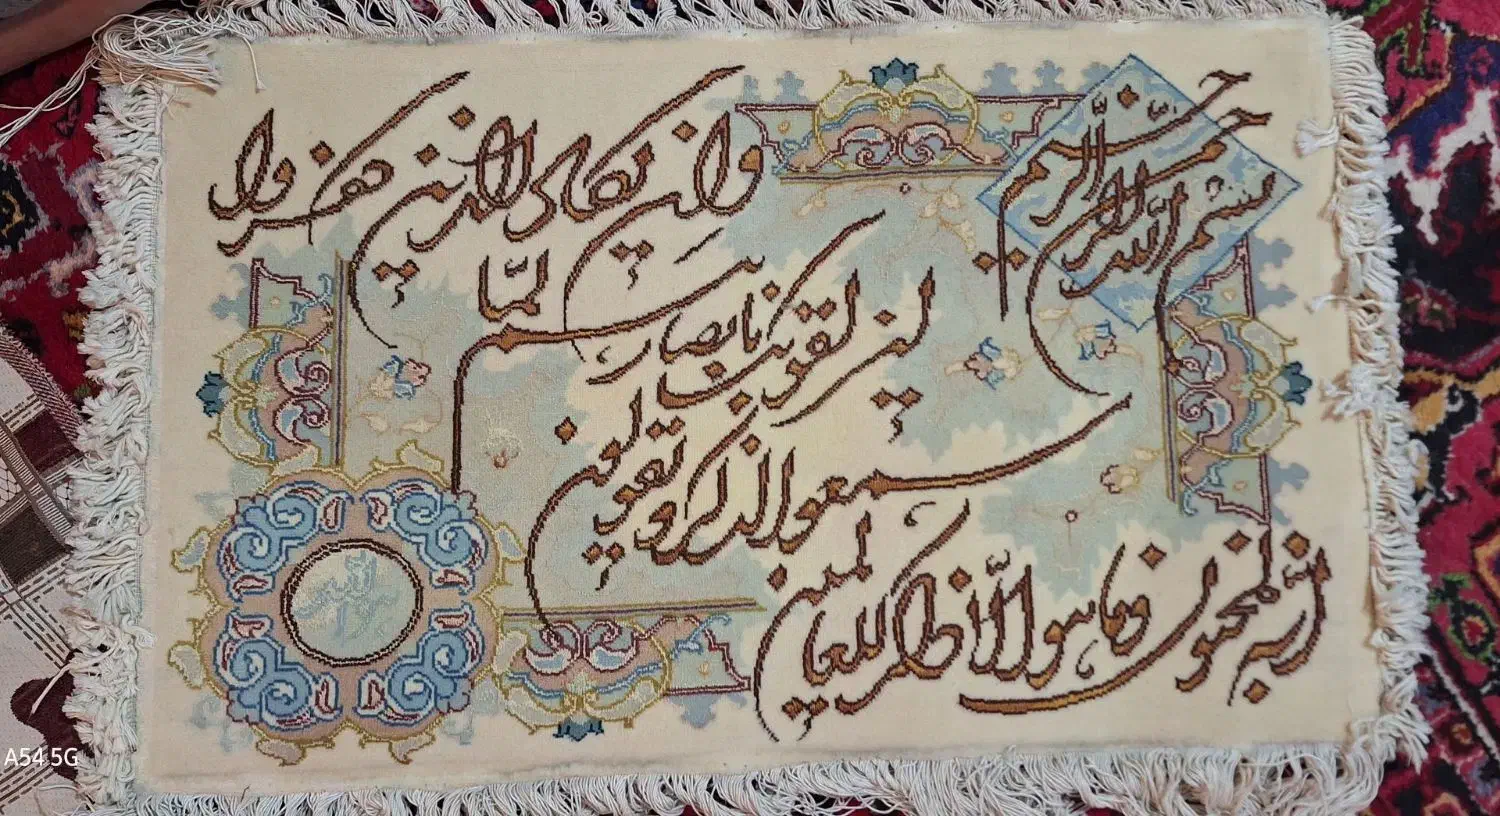 بسم الله الرحمن الرحیم
وان یکاد الذین کفروا
لیزلقونک بابصارهم لما
سمعوا الذکر و یقولون
انه لمجنون و ما هو الا ذکر للعالمین
A54 5G